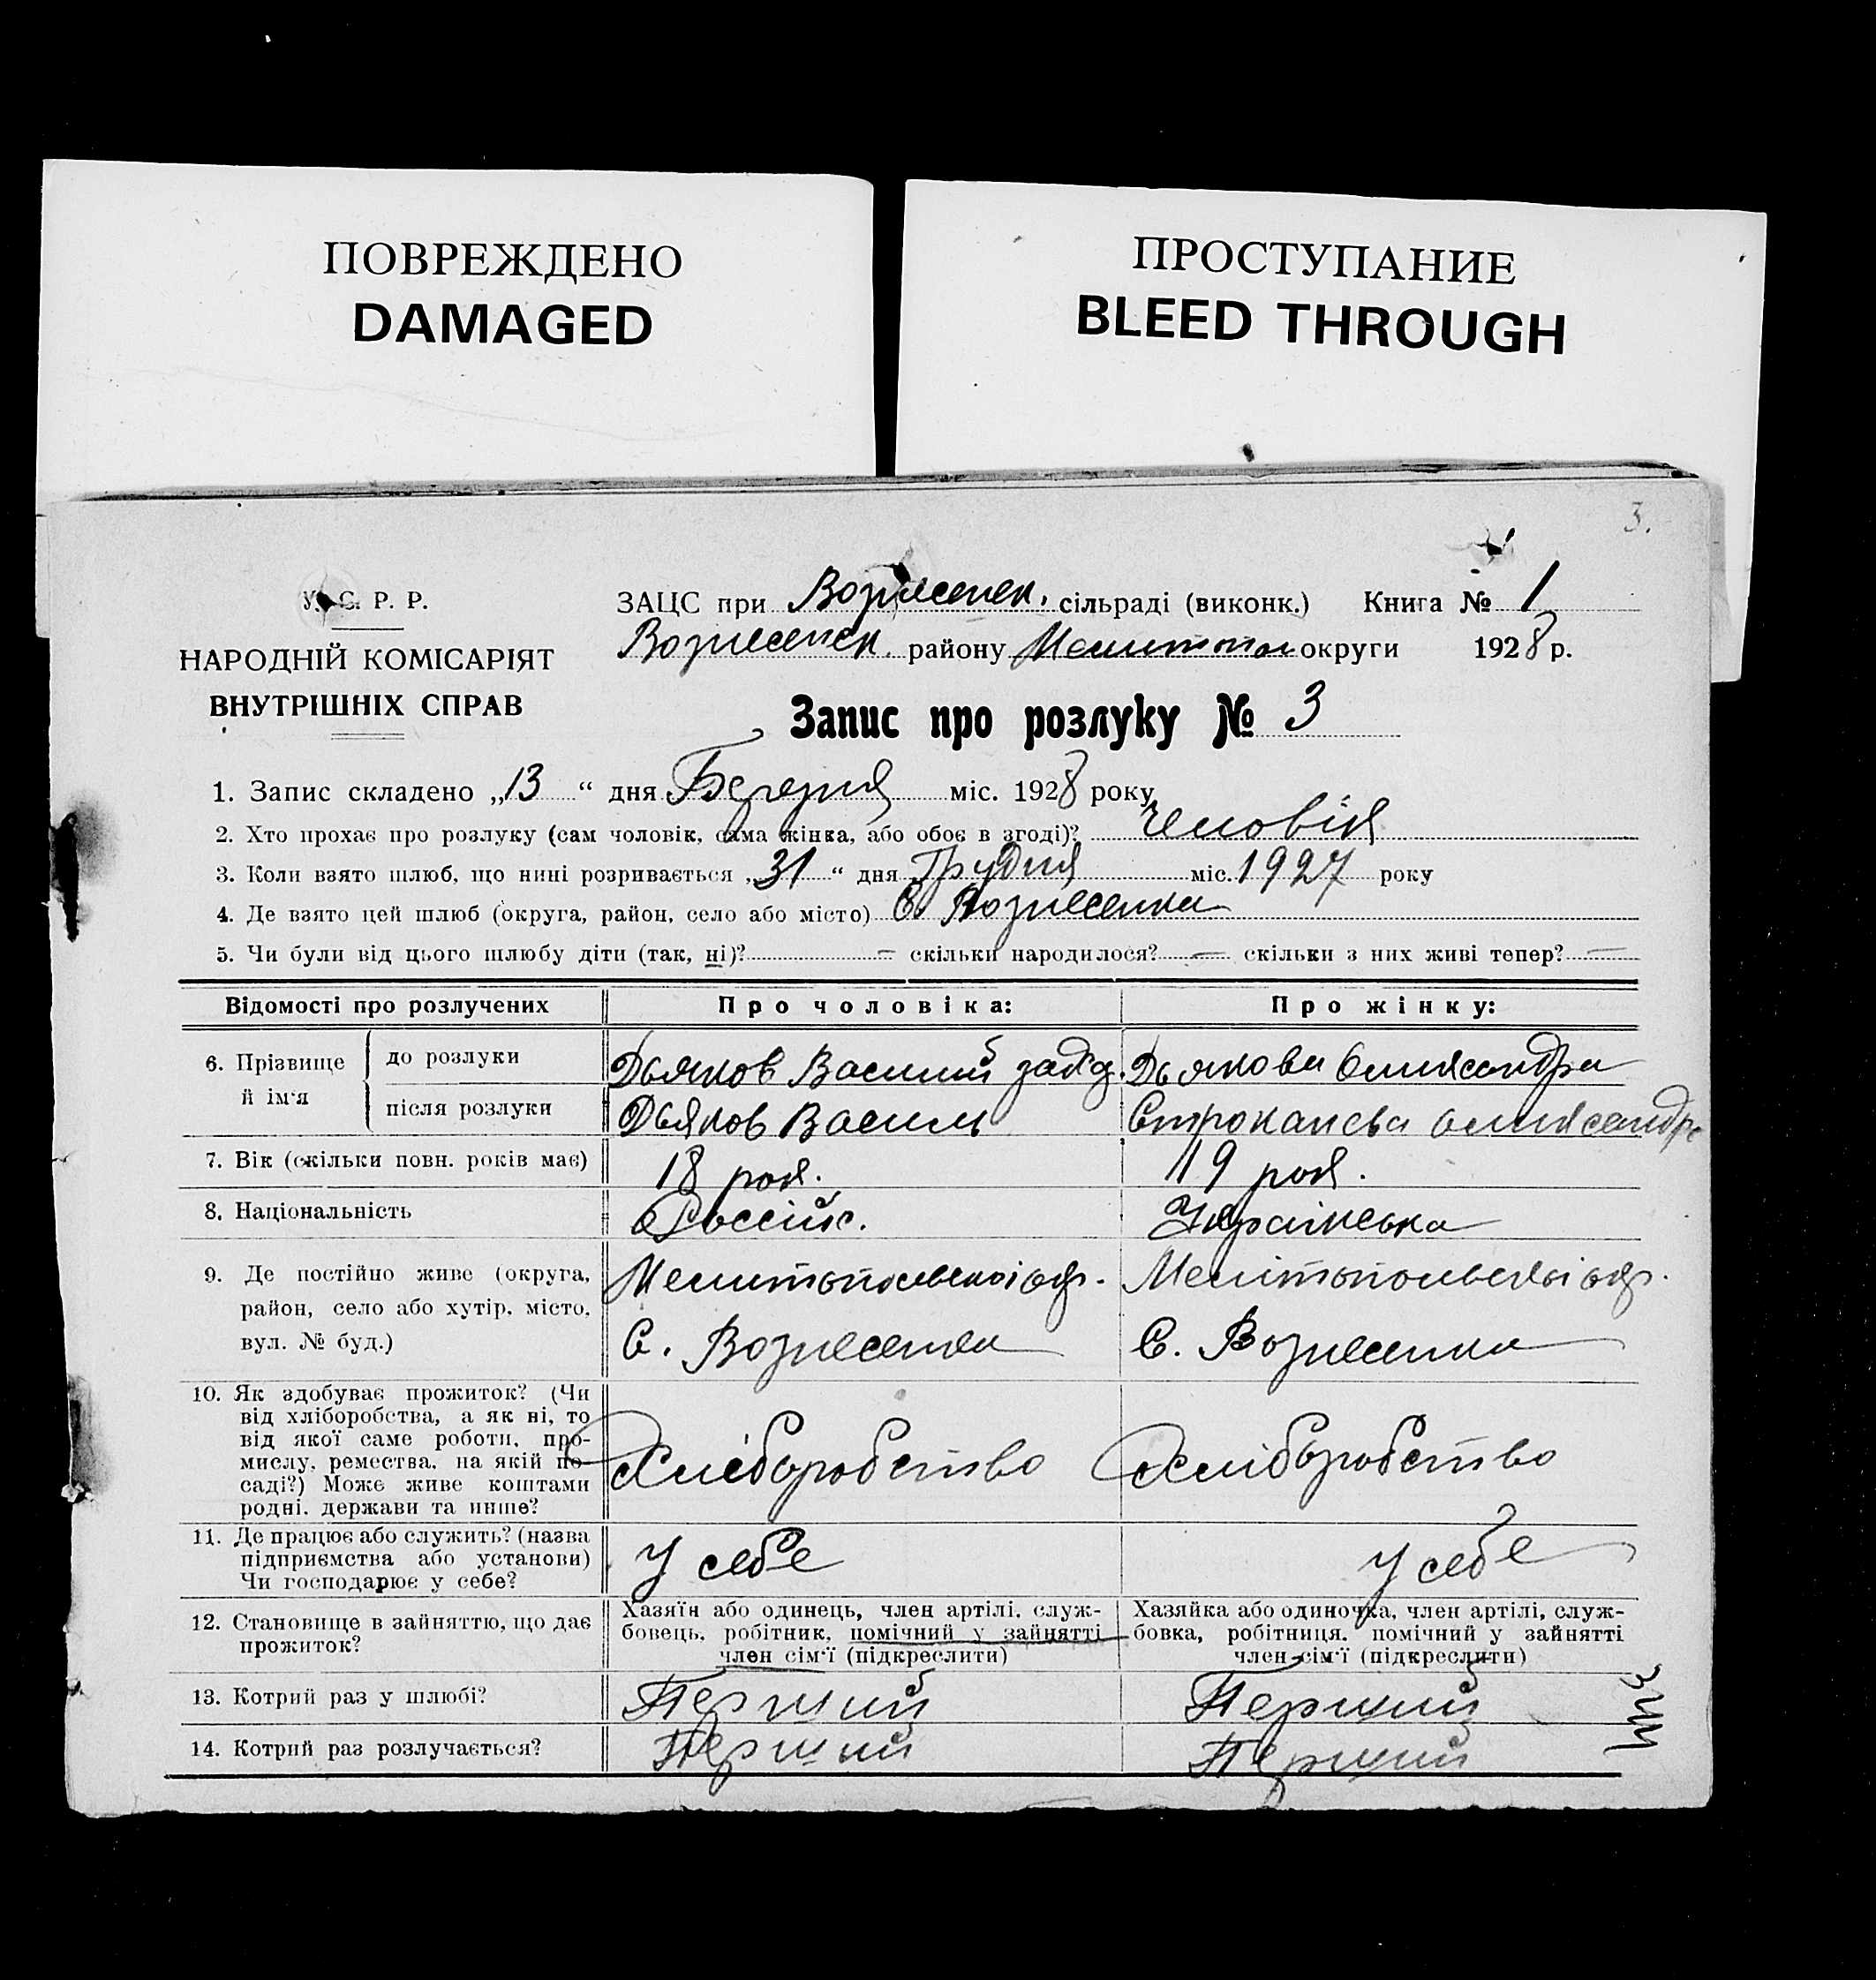 ПОВРЕЖДЕНО
DAMAGED
ПРОСТУПАНИЕ
BLEED THROUGH
3.
У. С. Р. Р.
НАРОДНІЙ КОМІСАРІЯТ
ВНУТРІШНІХ СПРАВ
ЗАЦС при Вознесенск. сільраді (виконк.) Книга № 1
Вознесенск. району Мелитопол округи 1928 р.
Запис про розлуку № 3
1. Запис складено „13“ дня Березня міс. 1928 року
2. Хто прохає про розлуку (сам чоловік, сама жінка, або обоє в згоді)? Чоловік
3. Коли взято шлюб, що нині розривається „31“ дня Грудня міс. 1927 року
4. Де взято цей шлюб (округа, район, село або місто) С. Вознесенка
5. Чи були від цього шлюбу діти (так, ні)? — скільки народилося? — скільки з них живі тепер? —
Відомості про розлучених Про чоловіка: Про жінку:
6. Прізвище й ім'я
до розлуки Дьяков Василий Дьякова Олександра
після розлуки Дьяков Василь Олександра
7. Вік (скільки повн. років має) 18 рок. 19 рок.
8. Національність Россійс. Українська
9. Де постійно живе (округа, район, село або хутір, місто, вул. № буд.)
Мелитопольскої окр. Мелітопольскої окр.
С. Вознесенка С. Вознесенка
10. Як здобуває прожиток? (Чи
від хліборобства, а як ні, то
від якої саме роботи, про-
мислу, ремества, на якій по-
саді?) Може живе коштами
родні, держави та инше?
Хліборобство Хліборобство
11. Де працює або служить? (назва
підприємства або установи)
Чи господарює у себе?
У себе У себе
12. Становище в зайняттю, що дає
прожиток?
Хазяїн або одинець, член артілі, служ-
бовець, робітник, помічний у зайнятті
член сім'ї (підкреслити)
Хазяйка або одиночка, член артілі, служ-
бовка, робітниця, помічний у зайнятті
член сім'ї (підкреслити)
13. Котрий раз у шлюбі? Перший Перший
14. Котрий раз розлучається? Перший Перший